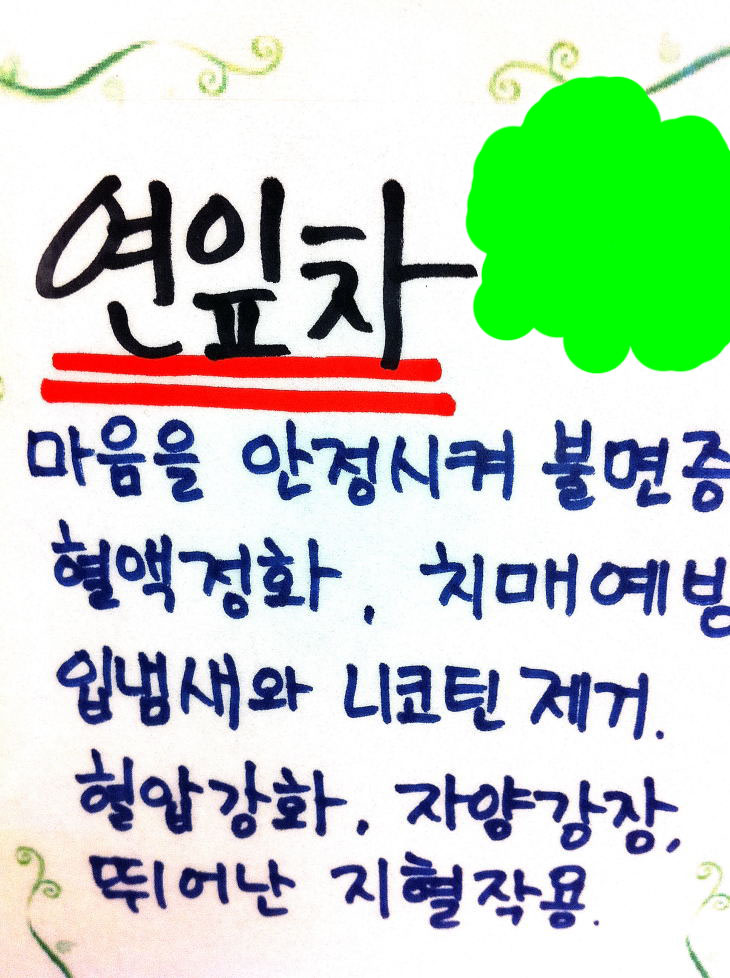 연잎차
마음을 안정시켜 불면증
혈액정화, 치매예방
입냄새와 니코틴 제거.
혈압강화, 자양강장,
뛰어난 지혈작용.